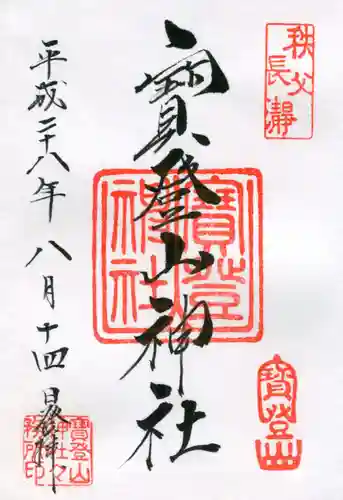 秩父
長瀞
寳登山神社
寳登山
神社
寳登山
平成二十八年八月十四日参拝
寳登山
神社々
務所印